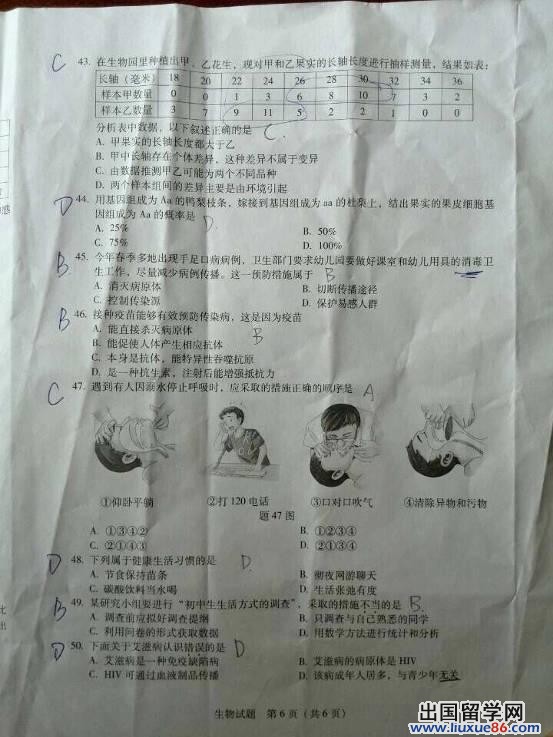 C 43. 在生物园里种植出甲、乙花生，现对甲和乙果实的长轴长度进行抽样测量，结果如表：
长轴（毫米） 18 20 22 24 26 28 30 32 34 36
样本甲数量 0 0 1 3 6 8 10 7 3 2
样本乙数量 3 7 9 11 5 2 2 1 0 0
分析表中数据，以下叙述正确的是 C.
A. 甲果实的长轴长度都大于乙
B. 甲中长轴存在个体差异，这种差异不属于变异
C. 由数据推测甲乙可能为两个不同品种
D. 两个样本组间的差异主要是由环境引起
D 44. 用基因组成为 Aa 的鸭梨枝条，嫁接到基因组成为 aa 的杜梨上，结出果实的果皮细胞基
因组成为 Aa 的概率是 D.
A. 25% B. 50%
C. 75% D. 100%
B 45. 今年春季多地出现手足口病病例，卫生部门要求幼儿园要做好课室和幼儿用具的消毒卫
生工作，尽量减少病例传播。这一预防措施属于 B
A. 消灭病原体 B. 切断传播途径
C. 控制传染源 D. 保护易感人群
B 46. 接种疫苗能够有效预防传染病，这是因为疫苗
A. 能直接杀灭病原体 B
B. 能促使人体产生相应抗体
C. 本身是抗体，能特异性吞噬抗原
D. 是一种抗生素，注射后能增强抵抗力
C 47. 遇到有人因溺水停止呼吸时，应采取的措施正确的顺序是 A
①仰卧平躺 ②打 120 电话 ③口对口吹气 ④清除异物和污物
题 47 图
A. ①③④② B. ①②③④
C. ②①④③ D. ②①③④
D 48. 下列属于健康生活习惯的是 D.
A. 节食保持苗条 B. 彻夜网游聊天
C. 碳酸饮料当水喝 D. 生活张弛有度
B 49. 某研究小组要进行“初中生生活方式的调查”，采取的措施不当的是 B.
A. 调查前应拟好调查提纲 B. 只调查与自己熟悉的同学
C. 利用问卷的形式获取数据 D. 用数学方法进行统计和分析
D 50. 下面关于艾滋病认识错误的是 D
A. 艾滋病是一种免疫缺陷病 B. 艾滋病的病原体是 HIV
C. HIV 可通过血液制品传播 D. 该病成年人居多，与青少年无关
生物试题 第 6 页（共 6 页）
出国留学网
www.liuxue86.com